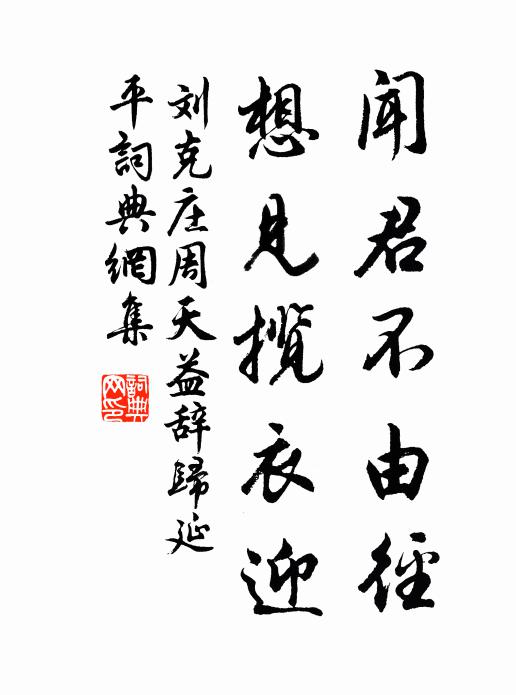 闻君不由径
想见揽衣迎
刘克庄周天益辞歸延
平詞典網集
詞典
网印